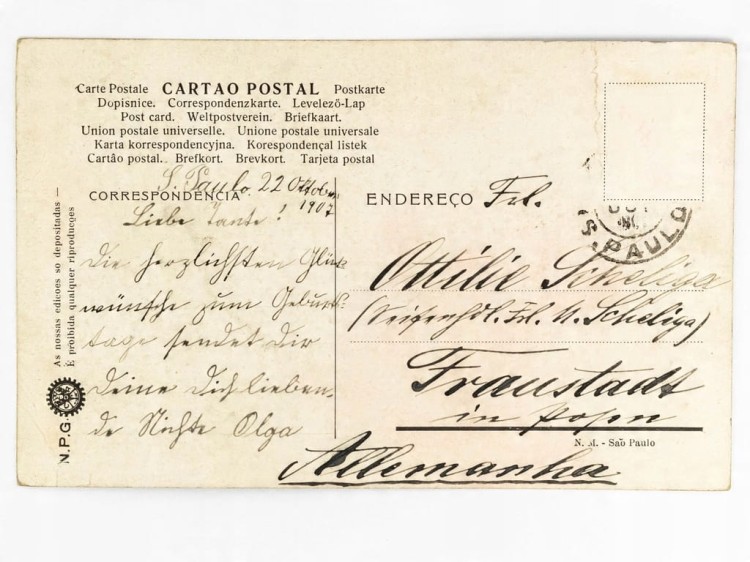 Carte Postale CARTAO POSTAL Postkarte
Dopisnice. Correspondenzkarte. Levelező-Lap
Post card. Weltpostverein. Briefkaart.
Union postale universelle. Unione postale universale
Karta korrespondencyjna. Korespondençal listek
Cartâo postal. Brefkort. Brevkort. Tarjeta postal
S. Paulo 22 Oktober
1907
CORRESPONDENCIA
Liebe Tante!
Die herzlichsten Glück-
wünsche zum Geburts-
tage sendet Dir
Deine Dich lieben-
de Nichte Olga
ENDEREÇO Frl.
Ottilie Scheliga
(Seifenhdl. Frl. A. Scheliga)
Fraustadt
in Posen
Allemanha.
N. M. - Saõ Paulo
S. PAULO
As nossas edicoes so depositadas —
E proibida qualquer riproducoes
N.P.G.